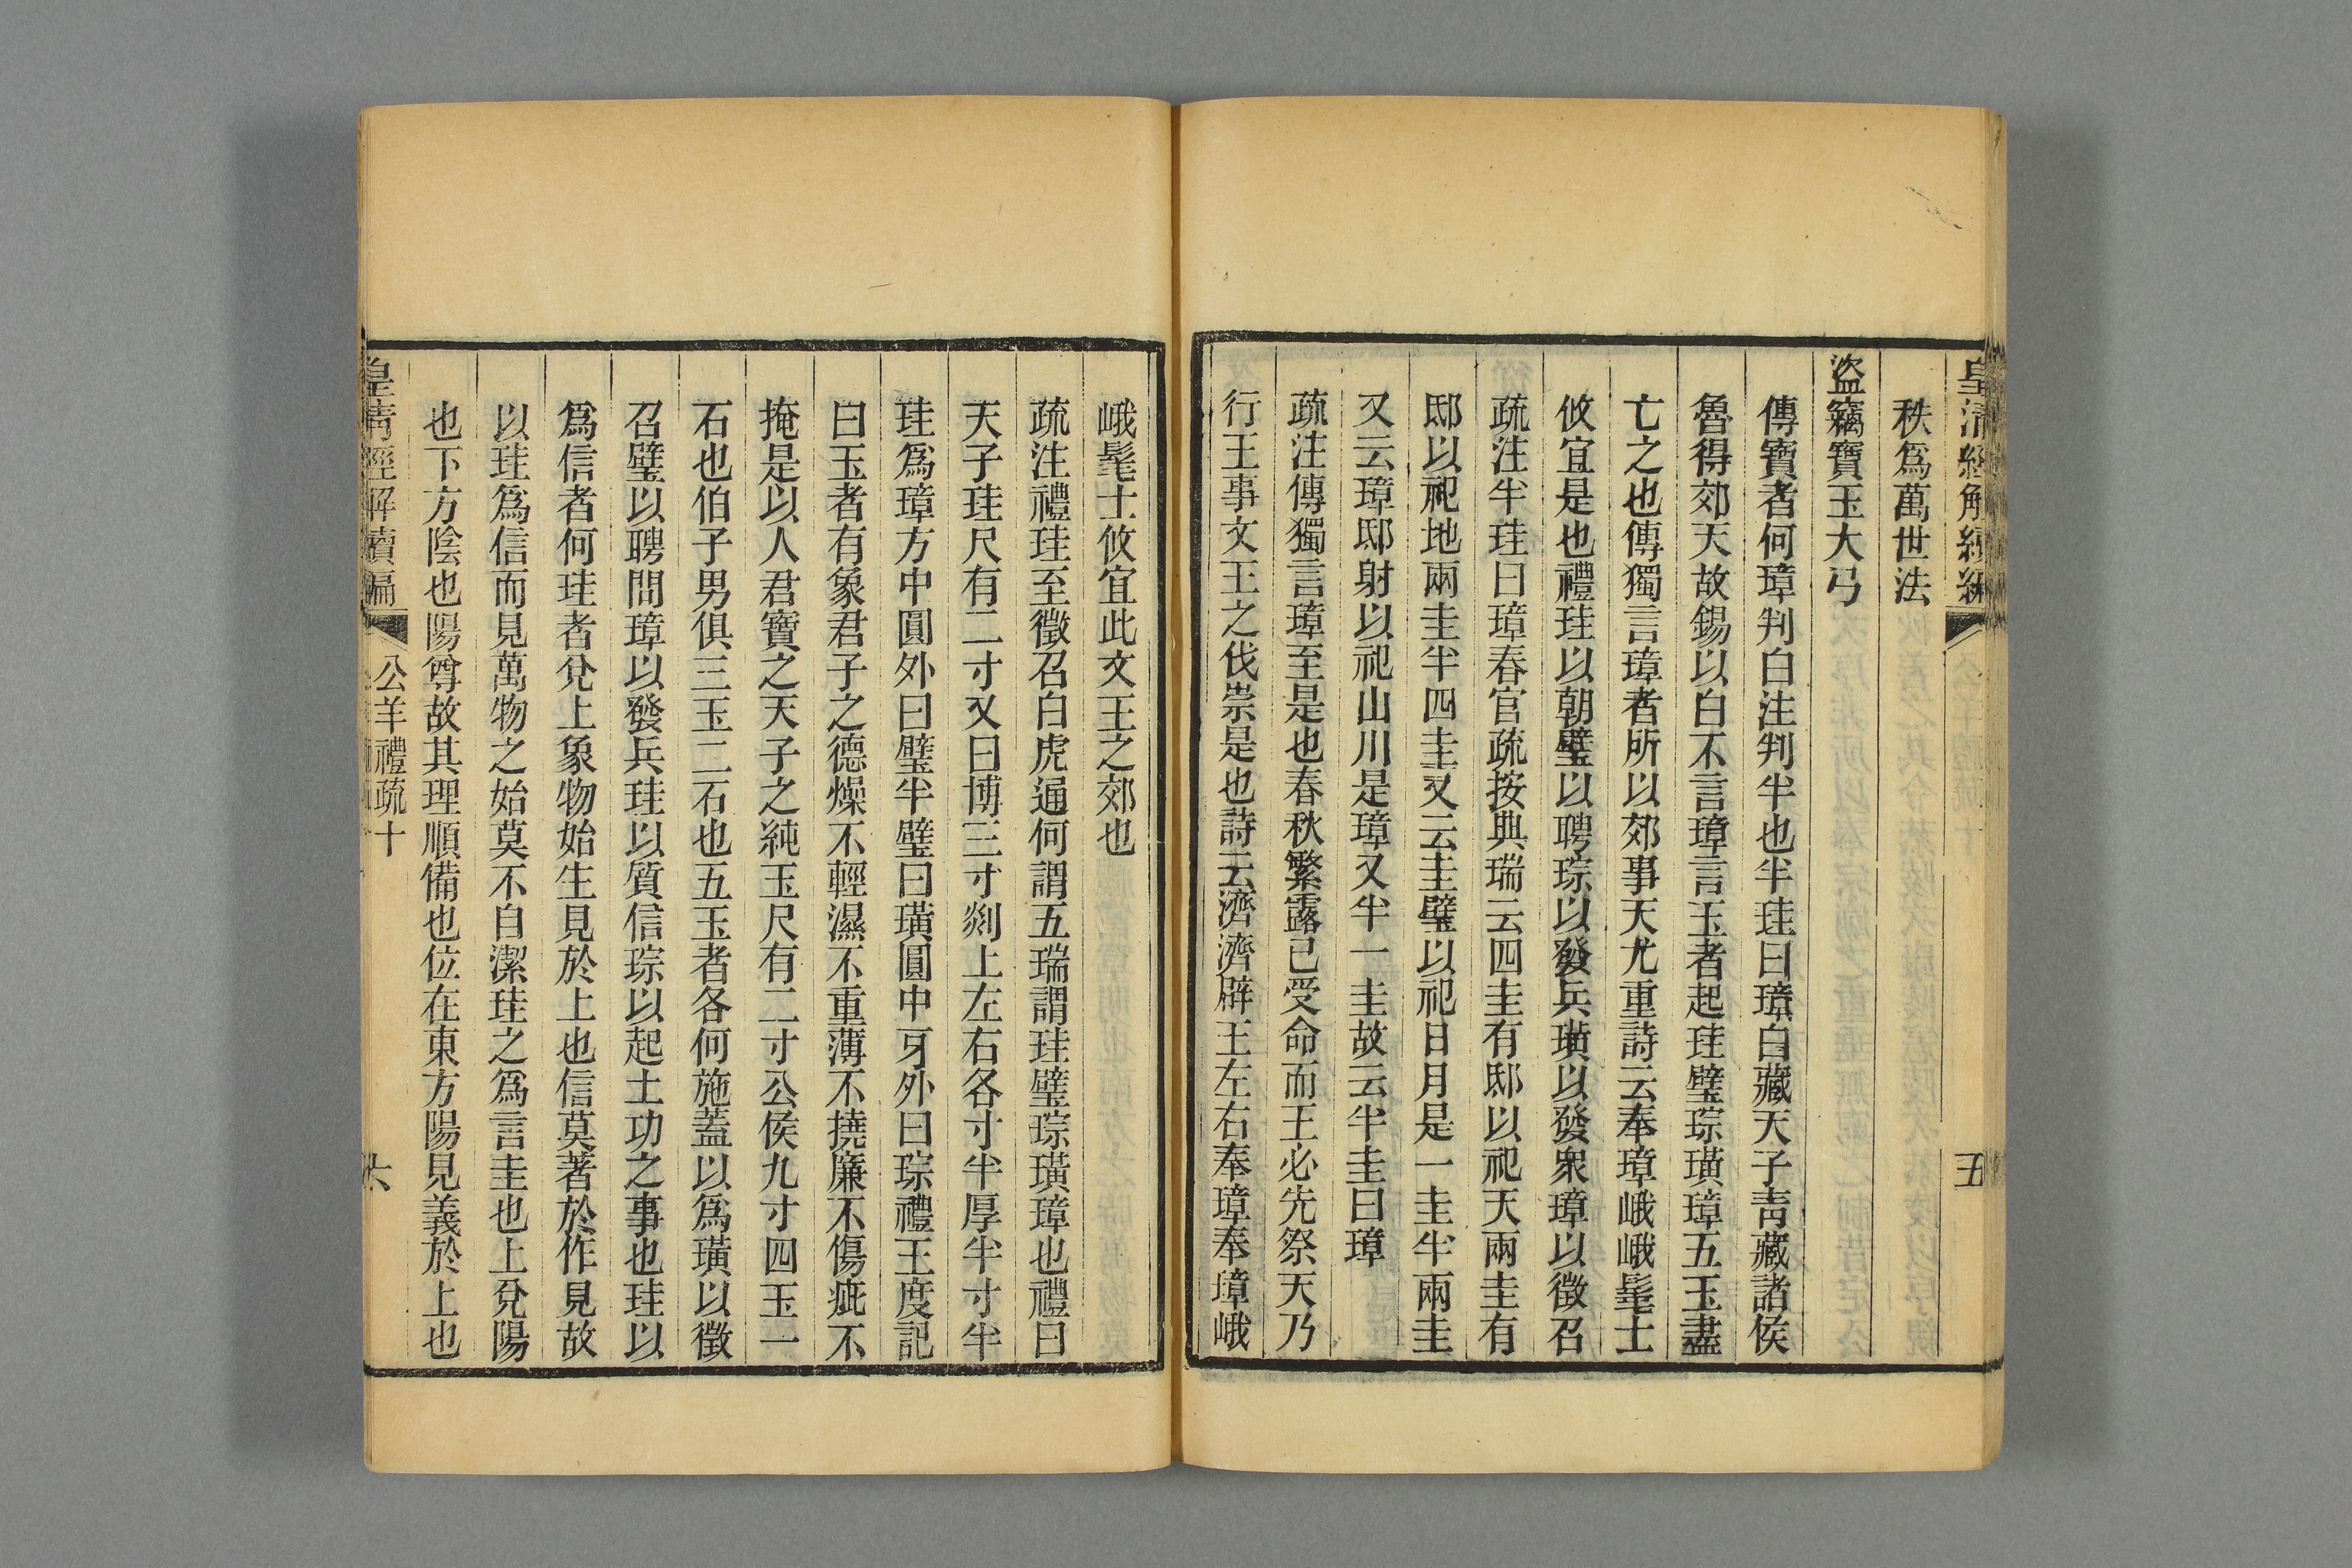 皇清經解續編
五
秩爲萬世法
盜竊寶玉大弓
傳寶者何璋判白注判半也半珪曰璋白藏天子靑藏諸侯
魯得郊天故錫以白不言璋言玉者起珪璧琮璜璋五玉盡
亡之也傳獨言璋者所以郊事天尤重詩云奉璋峨峨髦士
攸宜是也禮珪以朝璧以聘琮以發兵璜以發衆璋以徵召
疏注半珪曰璋春官疏按典瑞云四圭有邸以祀天兩圭有
邸以祀地兩圭半四圭又云圭璧以祀日月是一圭半兩圭
又云璋邸射以祀山川是璋又半一圭故云半圭曰璋
疏注傳獨言璋至是也春秋繁露已受命而王必先祭天乃
行王事文王之伐崇是也詩云濟濟辟王左右奉璋奉璋峨
峨髦士攸宜此文王之郊也
疏注禮珪至徵召白虎通何謂五瑞謂珪璧琮璜璋也禮曰
天子珪尺有二寸又曰博三寸剡上左右各寸半厚半寸半
珪爲璋方中圓外曰璧半璧曰璜圓中牙外曰琮禮王度記
曰玉者有象君子之德燥不輕濕不重薄不撓廉不傷疵不
掩是以人君寶之天子之純玉尺有二寸公侯九寸四玉一
石也伯子男俱三玉二石也五玉者各何施蓋以爲璜以徵
召璧以聘問璋以發兵珪以質信琮以起土功之事也珪以
爲信者何珪者兌上象物始生見於上也信莫著於作見故
以珪爲信而見萬物之始莫不自潔珪之爲言圭也上兌陽
也下方陰也陽尊故其理順備也位在東方陽見義於上也
皇清經解續編
公羊禮疏十
六